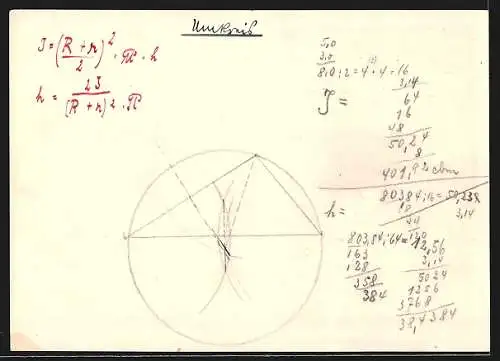 Umkreis
J = (R + r / 2)² · π · h
h = 2J / (R + r)² · π
5,0
3,0
8,0 : 2 = 4 · 4 = 16
3,14
64
16
48
50,24
8
401,92 cbm
J =
80384 : 16 = 50,238
3,14
h =
803,84 : 64 = 12,56
163
128
358
384
12,56
3,14
5024
1256
3768
38,4384